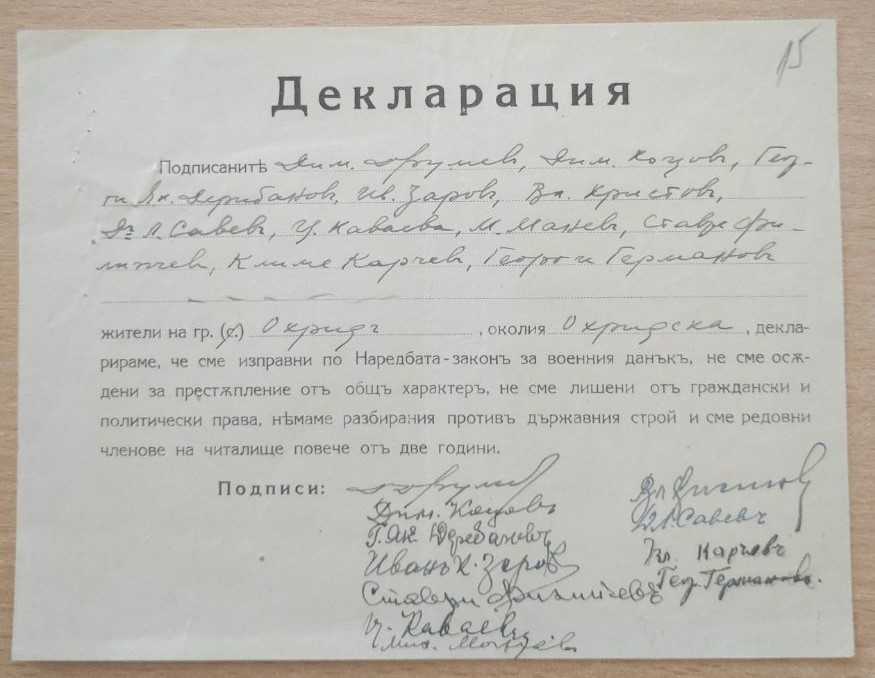 15
Декларация
Подписанитѣ Дим. Друмев, Дим. Коцовъ, Геор-
ги Як. Дерибановъ, Ив. Заровъ, Вл. Христовъ,
Дръ Л. Савевъ, Ц. Каваева, М. Маневъ, Ставре Фи-
липчевъ, Климе Карчевъ, Георги Германовъ
жители на гр. (с.) Охридъ , околия Охридска , декла-
рираме, че сме изправни по Наредбата-законъ за военния данъкъ, не сме осѫ-
дени за престѫпление отъ общъ характеръ, не сме лишени отъ граждански и
политически права, нѣмаме разбирания противъ държавния строй и сме редовни
членове на читалище повече отъ две години.
Подписи:
Дим. Коцовъ
Г. Як. Деребановъ
Иванъ Х. Заров
Ставри Филипчевъ
Ц. Каваев
Мих.
Д. Л. Савевъ
Кл. Карчевъ
Геор. Германовъ.